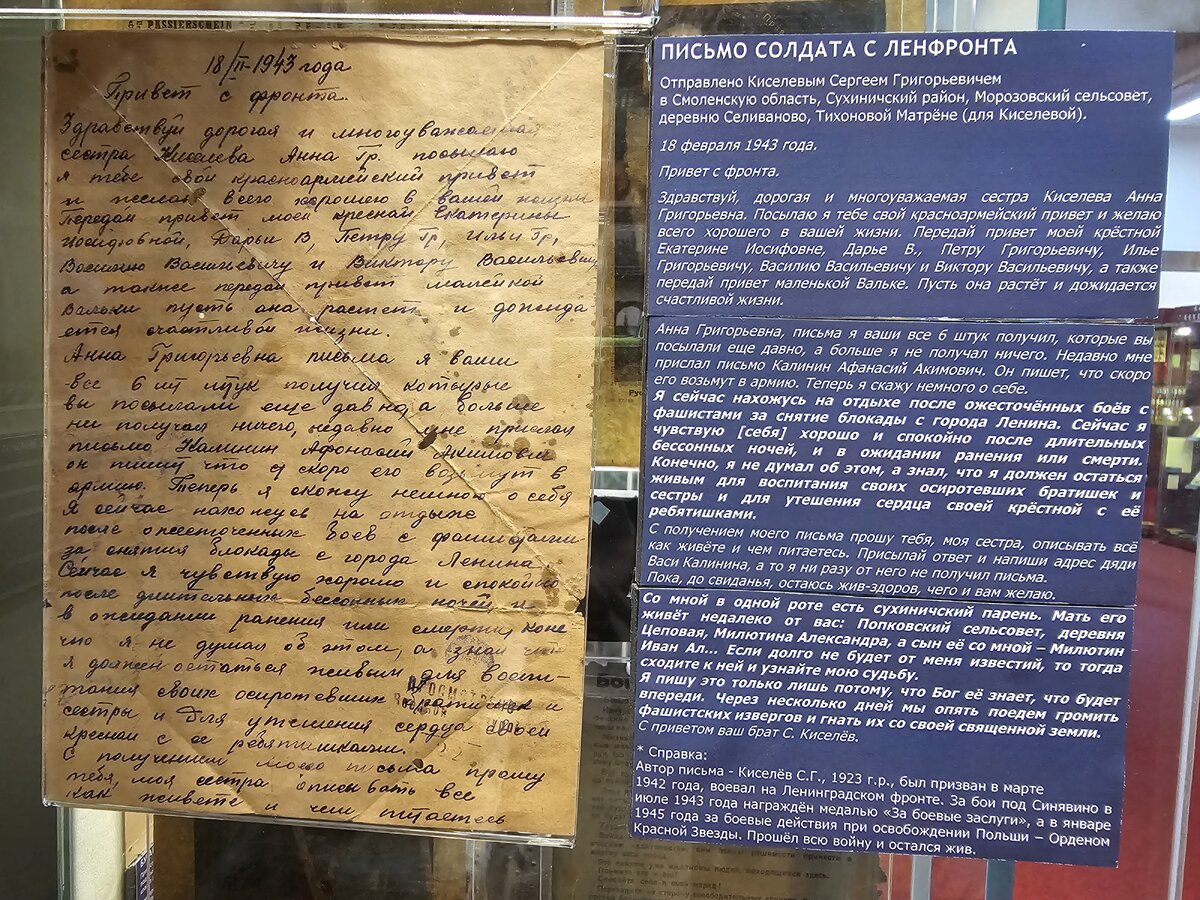 PASSIERSCHEIN
18/II-1943 года
Привет с фронта.
Здравствуй дорогая и многоуважаемая
сестра Киселева Анна Гр. посылаю
я тебе свой красноармейский привет
и желаю всего хорошего в вашей жизни
Передай привет моей кресной Екатерины
Иосифовной, Дарьи В, Петру Гр, Ильи Гр,
Василию Васильевичу и Виктору Васильевичу
а также передай привет маленкой
Вальки пусть она растеть и дожида
ется счастливой жизни.
Анна Григорьевна письма я ваши
все 6 шт штук получил которые
вы посылали еще давно, а больше
ни получал ничего, недавно мне прислал
письмо Калинин Афонасий Акимович
он пишит что скоро его возьмут в
армию. Теперь я скажу немного о себя
Я сейчас нахожусь на отдыхе
после ожесточенных боев с фашистами
за снятия блокады с города Ленина.
Сейчас я чувствую хорошо и спокойно
после длительных бессонных ночей и
в ожидании ранения или смерти, коне
что я не думал об этом, а знал что
я должен остаться живым для воспи-
тания своих осиротевших братишек и
сестры и для утешения сердца своей
кресной с ее ребятишками.
С получением моего письма прошу
тебя, моя сестра описывать все
как живете и чем питаетесь
ПИСЬМО СОЛДАТА С ЛЕНФРОНТА
Отправлено Киселевым Сергеем Григорьевичем
в Смоленскую область, Сухиничский район, Морозовский сельсовет,
деревню Селиваново, Тихоновой Матрёне (для Киселевой).
18 февраля 1943 года.
Привет с фронта.
Здравствуй, дорогая и многоуважаемая сестра Киселева Анна
Григорьевна. Посылаю я тебе свой красноармейский привет и желаю
всего хорошего в вашей жизни. Передай привет моей крёстной
Екатерине Иосифовне, Дарье В., Петру Григорьевичу, Илье
Григорьевичу, Василию Васильевичу и Виктору Васильевичу, а также
передай привет маленькой Вальке. Пусть она растёт и дожидается
счастливой жизни.
Анна Григорьевна, письма я ваши все 6 штук получил, которые вы
посылали еще давно, а больше я не получал ничего. Недавно мне
прислал письмо Калинин Афанасий Акимович. Он пишет, что скоро
его возьмут в армию. Теперь я скажу немного о себе.
Я сейчас нахожусь на отдыхе после ожесточённых боёв с
фашистами за снятие блокады с города Ленина. Сейчас я
чувствую [себя] хорошо и спокойно после длительных
бессонных ночей, и в ожидании ранения или смерти.
Конечно, я не думал об этом, а знал, что я должен остаться
живым для воспитания своих осиротевших братишек и
сестры и для утешения сердца своей крёстной с её
ребятишками.
С получением моего письма прошу тебя, моя сестра, описывать всё
как живёте и чем питаетесь. Присылай ответ и напиши адрес дяди
Васи Калинина, а то я ни разу от него не получил письма.
Пока, до свиданья, остаюсь жив-здоров, чего и вам желаю.
Со мной в одной роте есть сухиничский парень. Мать его
живёт недалеко от вас: Попковский сельсовет, деревня
Цеповая, Милютина Александра, а сын её со мной – Милютин
Иван Ал... Если долго не будет от меня известий, то тогда
сходите к ней и узнайте мою судьбу.
Я пишу это только лишь потому, что Бог её знает, что будет
впереди. Через несколько дней мы опять поедем громить
фашистских извергов и гнать их со своей священной земли.
С приветом ваш брат С. Киселёв.
* Справка:
Автор письма - Киселёв С.Г., 1923 г.р., был призван в марте
1942 года, воевал на Ленинградском фронте. За бои под Синявино в
июле 1943 года награждён медалью «За боевые заслуги», а в январе
1945 года за боевые действия при освобождении Польши – Орденом
Красной Звезды. Прошёл всю войну и остался жив.